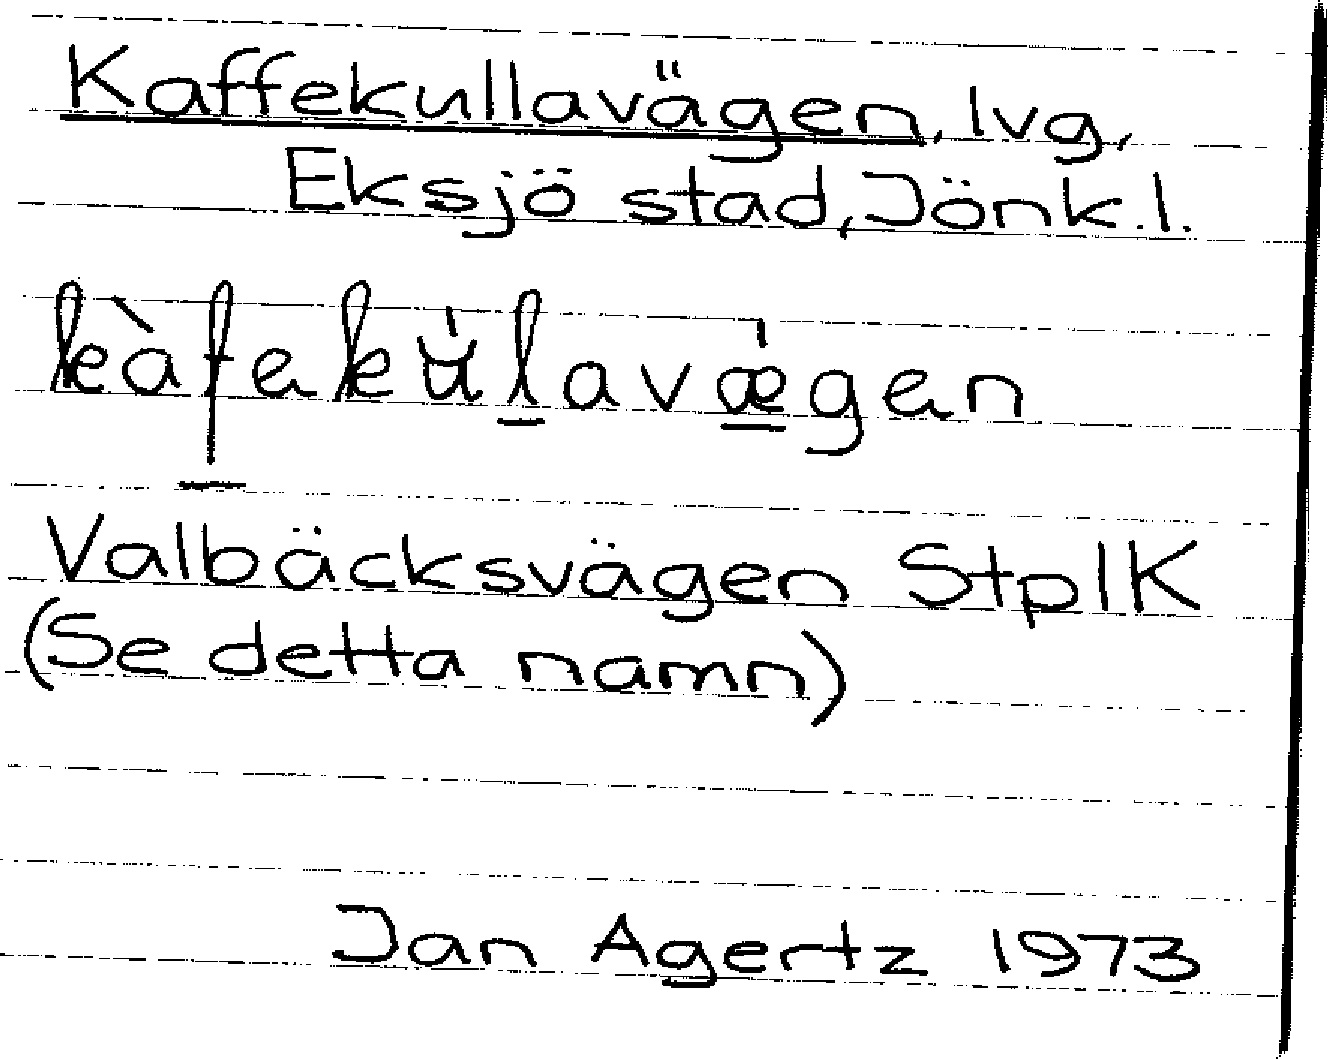 Kaffekullavägen, lvg,
Eksjö stad, Jönk.l.
kàfekúlavǽgen
Valbäcksvägen StplK
(Se detta namn)
Jan Agertz 1973